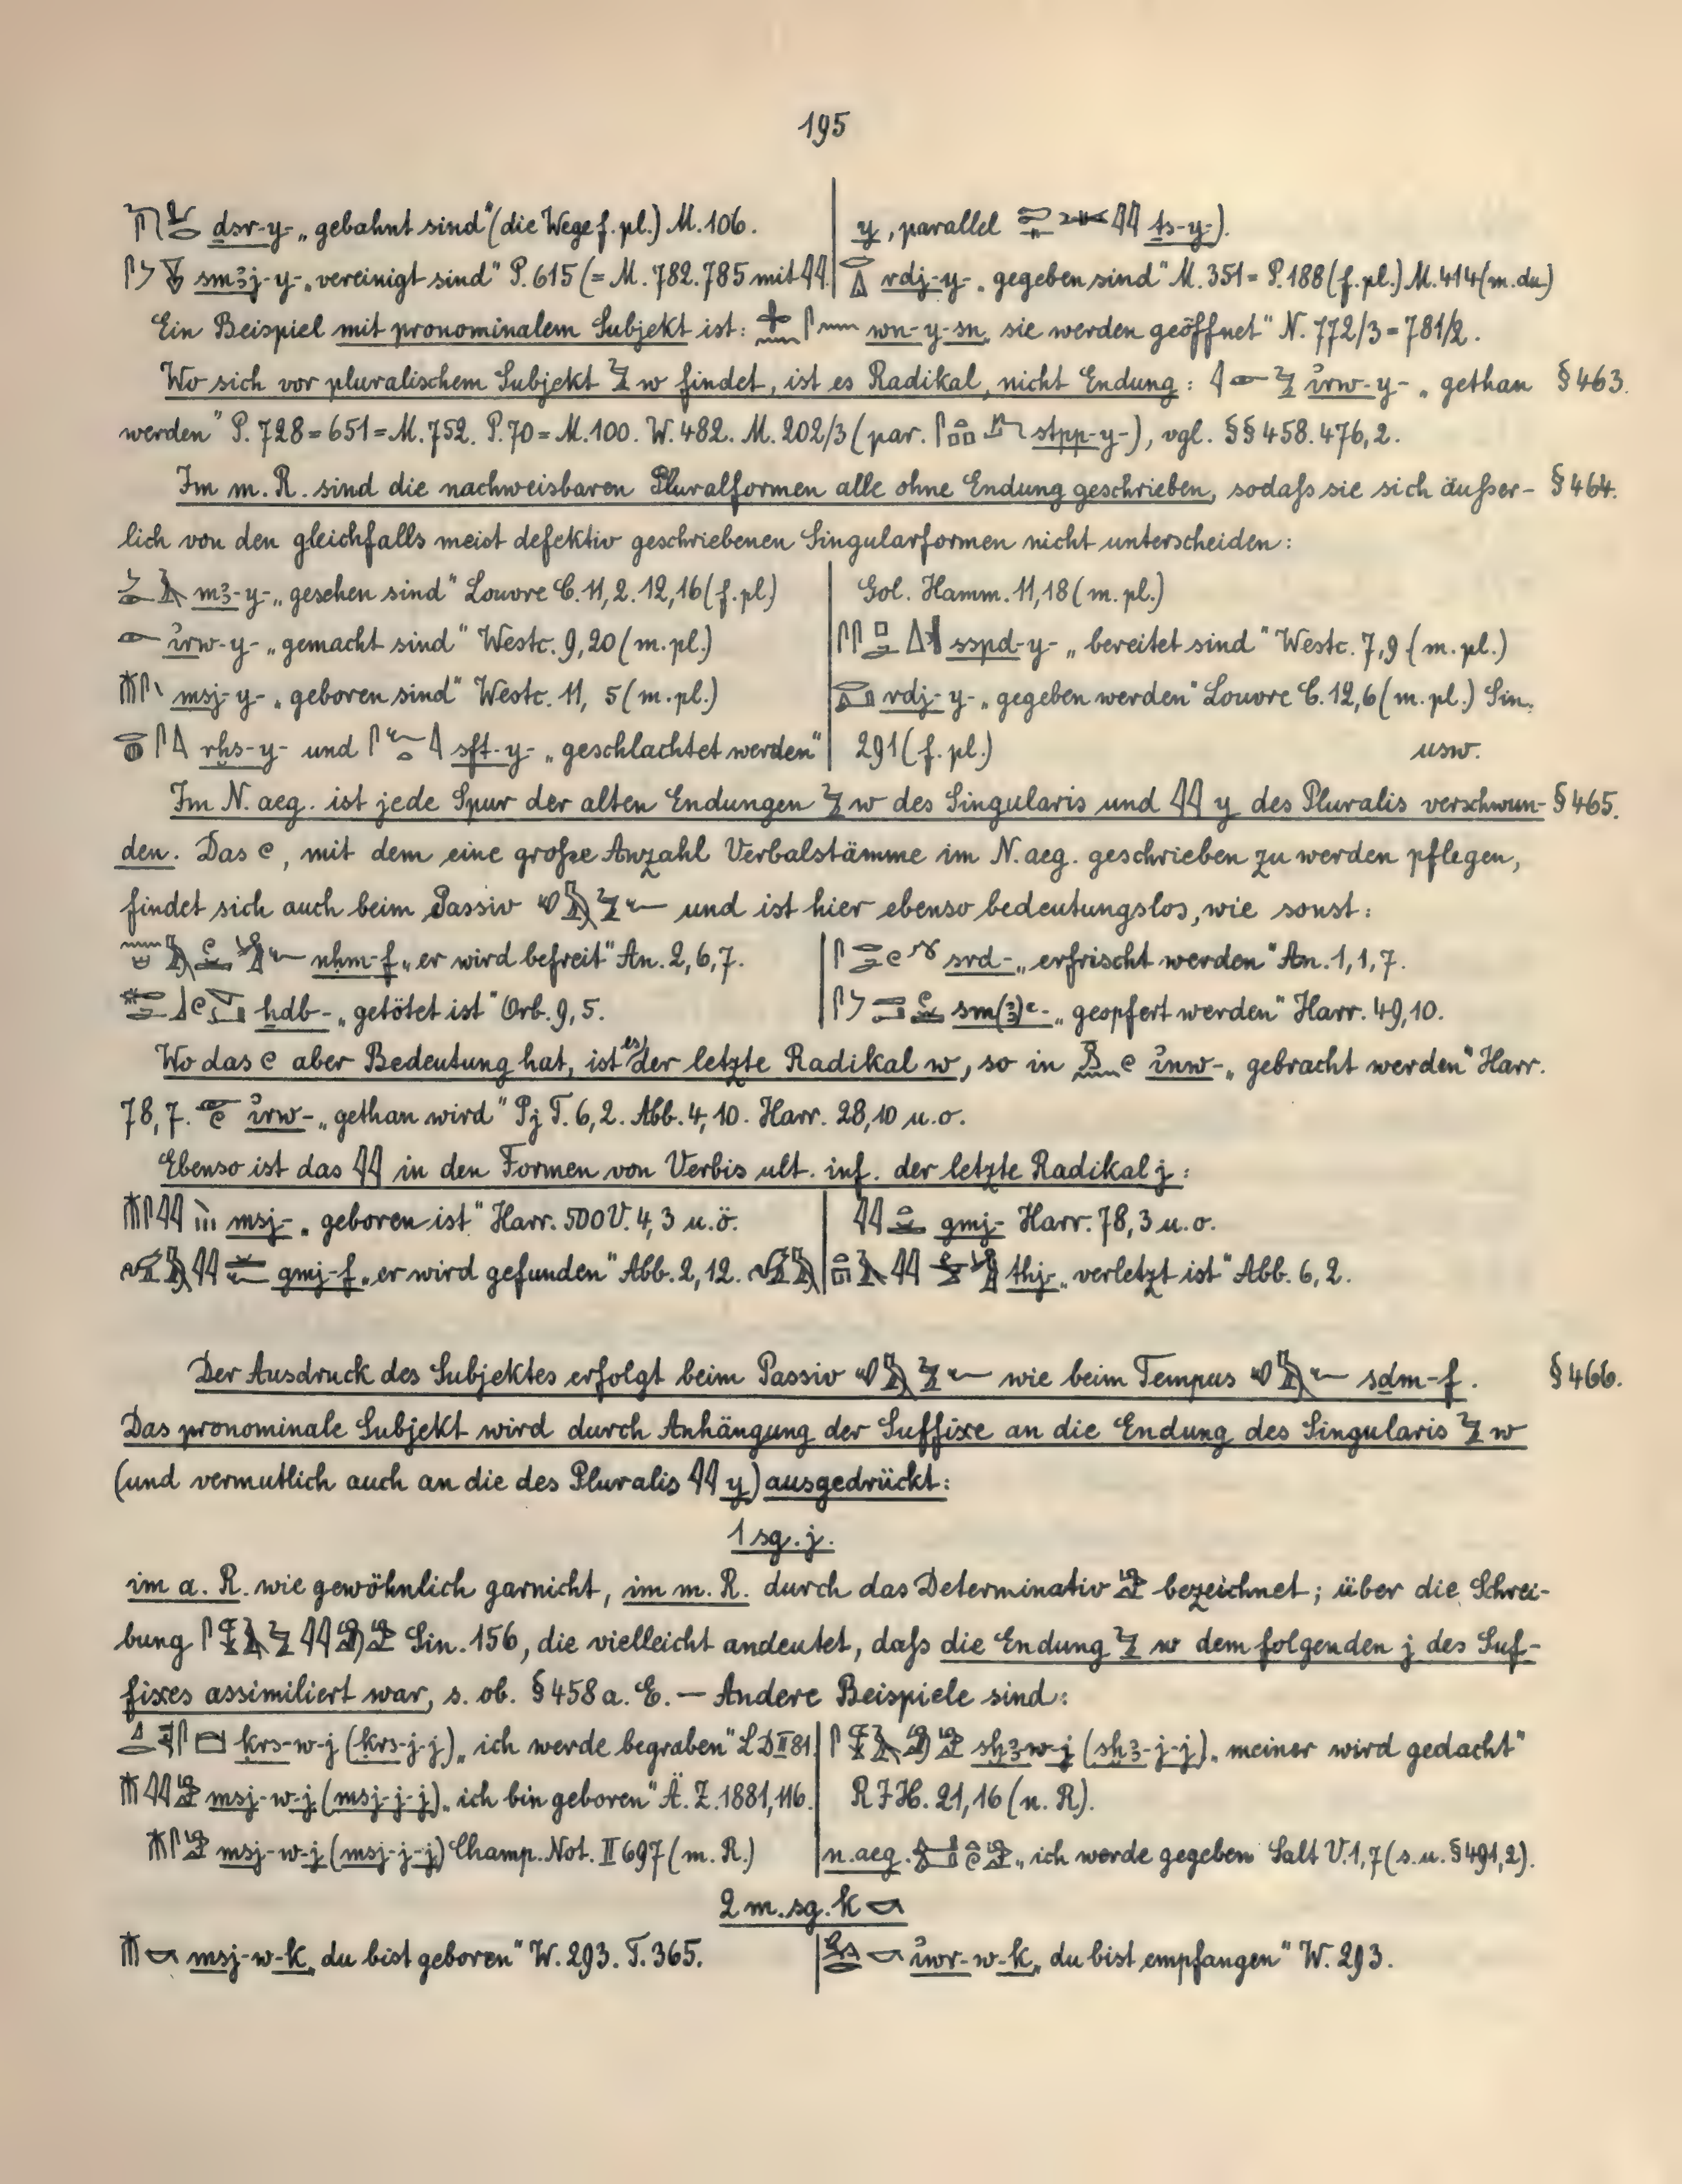 195
dsr-y- „gebahnt sind" (die Wege f. pl.) M. 106.
sm3j-y- „vereinigt sind" P. 615 (= M. 782. 785 mit 𓇋𓇋.
y, parallel ts-y-).
rdj-y- „gegeben sind" M. 351 = P. 188 (f. pl.) M. 414 (m. du.)
Ein Beispiel mit pronominalem Subjekt ist: wn-y-sn „sie werden geöffnet" N. 772/3 = 781/2.
Wo sich vor pluralischem Subjekt 𓅱 w findet, ist es Radikal, nicht Endung: 𓇋𓁹𓅱 i̓rw-y- „gethan § 463.
werden" P. 728 = 651 = M. 752. P. 70 = M. 100. W. 482. M. 202/3 (par. stpp-y-), vgl. §§ 458. 476,2.
Im m. R. sind die nachweisbaren Pluralformen alle ohne Endung geschrieben, sodaſs sie sich äuſser- § 464.
lich von den gleichfalls meist defektiv geschriebenen Singularformen nicht unterscheiden:
m3-y- „gesehen sind" Louvre C. 11, 2. 12, 16 (f. pl.)
𓁹 i̓rw-y- „gemacht sind" Westc. 9, 20 (m. pl.)
msj-y- „geboren sind" Westc. 11, 5 (m. pl.)
rhs-y- und sft-y- „geschlachtet werden"
Gol. Hamm. 11, 18 (m. pl.)
sspd-y- „bereitet sind" Westc. 7, 9 (m. pl.)
rdj-y- „gegeben werden" Louvre C. 12, 6 (m. pl.) Sin.
291 (f. pl.) usw.
Im N. aeg. ist jede Spur der alten Endungen 𓅱 w des Singularis und 𓇋𓇋 y des Pluralis verschwun- § 465.
den. Das 𓏲, mit dem eine groſse Anzahl Verbalstämme im N. aeg. geschrieben zu werden pflegen,
findet sich auch beim Passiv 𓄔𓅓𓅱𓆑 und ist hier ebenso bedeutungslos, wie sonst:
nḥm-f „er wird befreit" An. 2, 6, 7.
ḫdb- „getötet ist" Orb. 9, 5.
srd- „erfrischt werden" An. 1, 1, 7.
sm(3)ᶜ- „geopfert werden" Harr. 49, 10.
Wo das 𓏲 aber Bedeutung hat, ist es der letzte Radikal w, so in i̓nw- „gebracht werden" Harr.
78, 7. i̓rw- „gethan wird" Pj T. 6, 2. Abb. 4, 10. Harr. 28, 10 u. o.
Ebenso ist das 𓇋𓇋 in den Formen von Verbis ult. inf. der letzte Radikal j:
msj- „geboren ist" Harr. 500 V. 4, 3 u. ö.
gmj-f „er wird gefunden" Abb. 2, 12.
gmj- Harr. 78, 3 u. o.
thj- „verletzt ist" Abb. 6, 2.
Der Ausdruck des Subjektes erfolgt beim Passiv 𓄔𓅓𓅱𓆑 wie beim Tempus 𓄔𓅓𓆑 sdm-f. § 466.
Das pronominale Subjekt wird durch Anhängung der Suffixe an die Endung des Singularis 𓅱 w
(und vermutlich auch an die des Pluralis 𓇋𓇋 y) ausgedrückt:
1 sg. j.
im a. R. wie gewöhnlich garnicht, im m. R. durch das Determinativ 𓀀 bezeichnet; über die Schrei-
bung Sin. 156, die vielleicht andeutet, daſs die Endung 𓅱 w dem folgenden j des Suf-
fixes assimiliert war, s. ob. § 458 a. E. — Andere Beispiele sind:
ḳrs-w-j (ḳrs-j-j) „ich werde begraben" LD II 81.
msj-w-j (msj-j-j) „ich bin geboren" Ä. Z. 1881, 116.
msj-w-j (msj-j-j) Champ. Not. II 697 (m. R.)
sḫ3-w-j (sḫ3-j-j) „meiner wird gedacht"
RJH. 21, 16 (n. R).
n. aeg. „ich werde gegeben Salt V. 1, 7 (s. u. § 491, 2).
2 m. sg. k 𓎡
msj-w-k „du bist geboren" W. 293. T. 365.
i̓wr-w-k „du bist empfangen" W. 293.